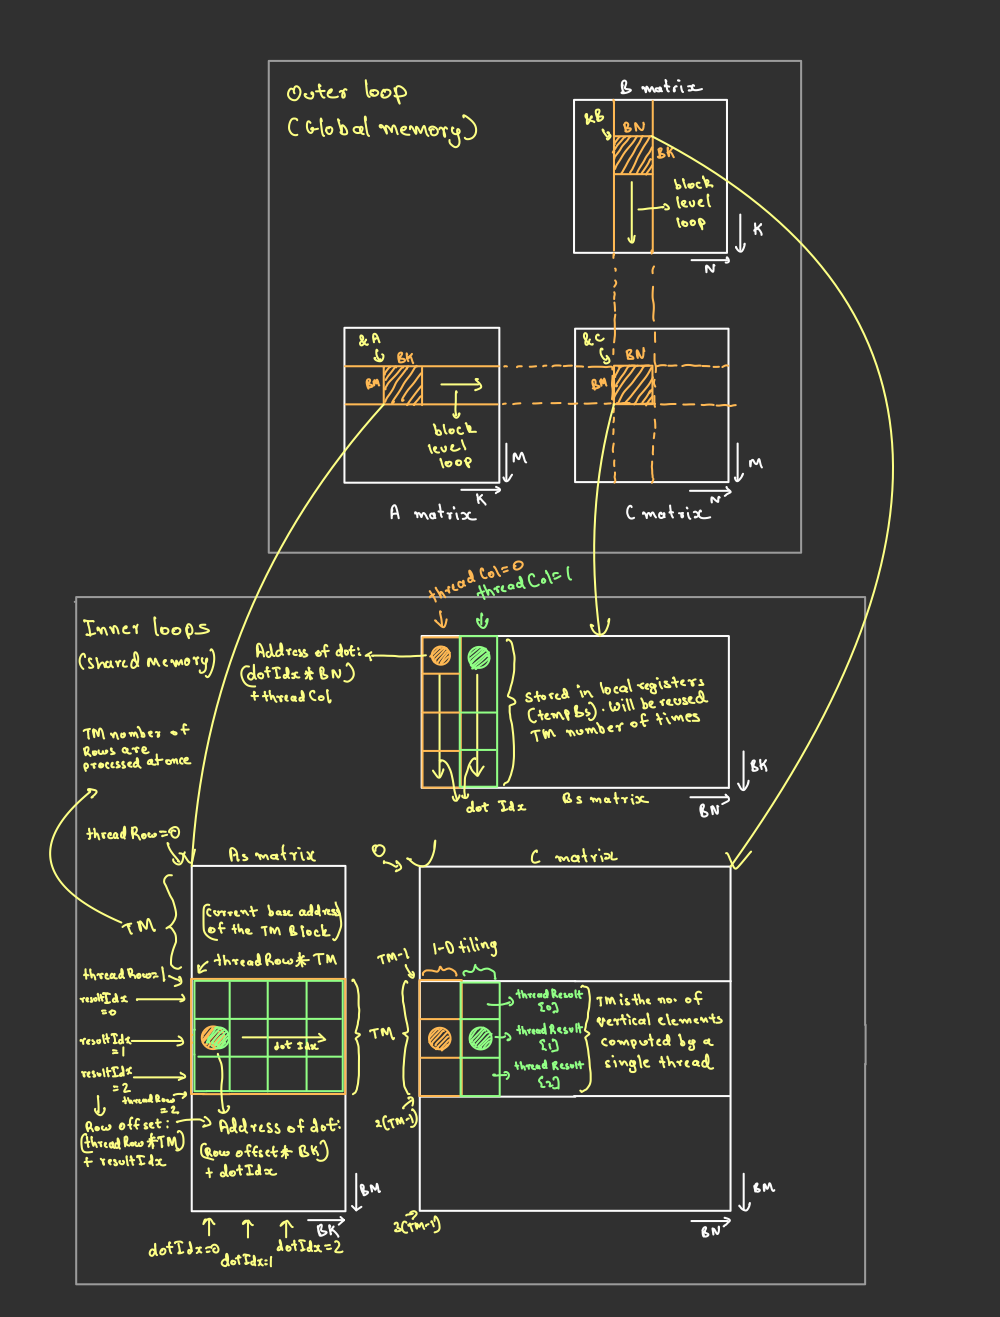 Outer loop
(Global memory)
B matrix
&B
BN
BK
block
level
loop
K
N
&A
BK
BM
block
level
loop
M
K
A matrix
&C
BN
BM
M
N
C matrix
threadCol=0
threadCol=1
Inner loops
(shared memory)
Address of dot:
(dotIdx * BN)
+ threadCol
Stored in local registers
(tempBs). Will be reused
TM number of times
dot Idx
Bs matrix
BK
BN
TM number of
Rows are
processed at once
threadRow=0
As matrix
TM
(Current base address
of the TM Block)
threadRow * TM
threadRow=1
resultIdx
=0
resultIdx
=1
resultIdx
=2
threadRow
=2
dot Idx
TM
Row offset:
(threadRow * TM)
+ resultIdx
Address of dot:
(Row offset * BK)
+ dotIdx
BM
BK
dotIdx=0
dotIdx=1
dotIdx=2
0
C matrix
TM-1
1-D tiling
threadResult
[0]
threadResult
[1]
threadResult
[2]
TM is the no. of
vertical elements
computed by a
single thread
2(TM-1)
3(TM-1)
BM
BN